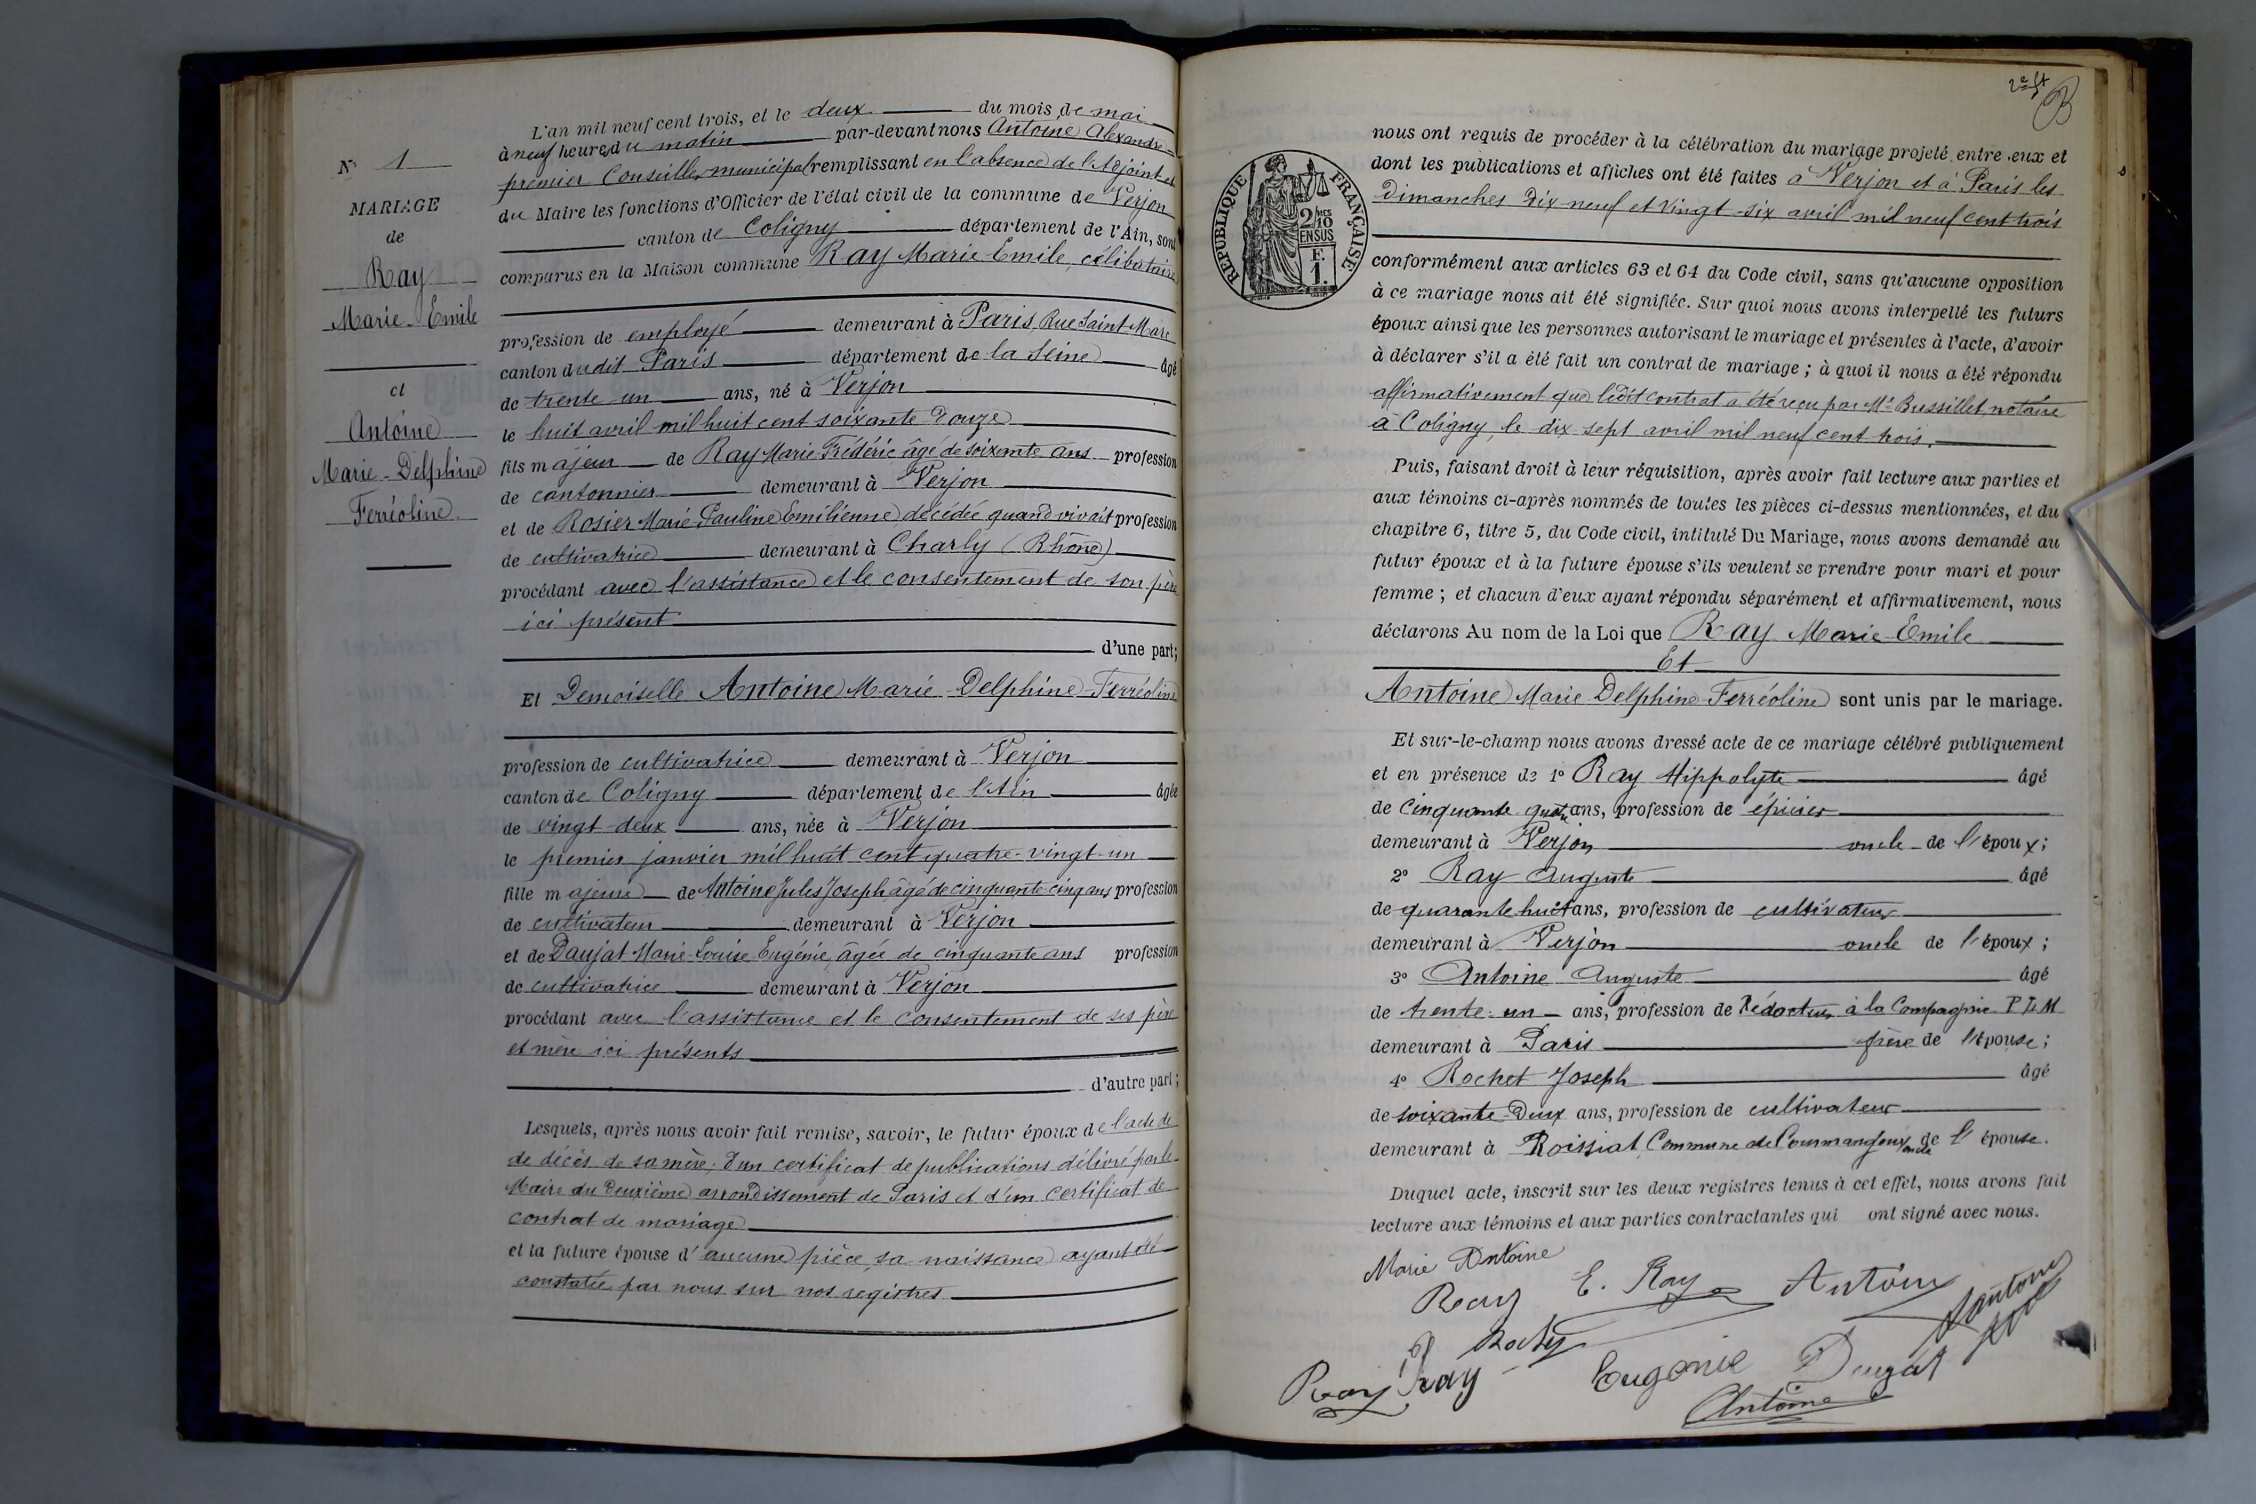 N° 1
MARIAGE
de
Ray
Marie-Emile
et
Antoine
Marie-Delphine
Ferréoline
L'an mil neuf cent trois, et le deux du mois de mai
à neuf heures du matin par-devant nous Antoine Alexandre
premier Conseiller municipal remplissant en l'absence de l'Adjoint et
du Maire les fonctions d'Officier de l'état civil de la commune de Verjon
canton de Coligny département de l'Ain, sont
comparus en la Maison commune Ray Marie-Emile, célibataire
profession de employé demeurant à Paris, Rue Saint-Marc
canton dudit Paris département de la Seine âgé
de trente-un ans, né à Verjon
le huit avril mil huit cent soixante-douze
fils majeur de Ray Marie Frédéric âgé de soixante ans profession
de cantonnier demeurant à Verjon
et de Rosier Marie-Pauline Emilienne décédée quand vivait profession
de cultivatrice demeurant à Charly (Rhône)
procédant avec l'assistance et le consentement de son père
ici présent
d'une part;
Et Demoiselle Antoine Marie-Delphine-Ferréoline
profession de cultivatrice demeurant à Verjon
canton de Coligny département de l'Ain âgée
de vingt-deux ans, née à Verjon
le premier janvier mil huit cent quatre-vingt-un
fille majeure de Antoine Jules Joseph âgé de cinquante-cinq ans profession
de cultivateur demeurant à Verjon
et de Daujat Marie-Louise Eugénie, âgée de cinquante ans profession
de cultivatrice demeurant à Verjon
procédant avec l'assistance et le consentement de ses père
et mère ici présents
d'autre part;
Lesquels, après nous avoir fait remise, savoir, le futur époux de l'acte de
de décès de sa mère; d'un certificat de publications délivré par le
Maire du deuxième arrondissement de Paris et d'un certificat de
contrat de mariage
et la future épouse d'aucune pièce, sa naissance ayant été
constatée par nous sur nos registres
B
RÉPUBLIQUE FRANÇAISE
2/10
EN SUS
F.
1.
nous ont requis de procéder à la célébration du mariage projeté entre eux et
dont les publications et affiches ont été faites à Verjon et à Paris les
Dimanches dix-neuf et vingt-six avril mil neuf cent trois
conformément aux articles 63 et 64 du Code civil, sans qu'aucune opposition
à ce mariage nous ait été signifiée. Sur quoi nous avons interpellé les futurs
époux ainsi que les personnes autorisant le mariage et présentes à l'acte, d'avoir
à déclarer s'il a été fait un contrat de mariage; à quoi il nous a été répondu
affirmativement que ledit contrat a été reçu par Me Bussillet notaire
à Coligny, le dix-sept avril mil neuf cent trois.
Puis, faisant droit à leur réquisition, après avoir fait lecture aux parties et
aux témoins ci-après nommés de toutes les pièces ci-dessus mentionnées, et du
chapitre 6, titre 5, du Code civil, intitulé Du Mariage, nous avons demandé au
futur époux et à la future épouse s'ils veulent se prendre pour mari et pour
femme; et chacun d'eux ayant répondu séparément et affirmativement, nous
déclarons Au nom de la Loi que Ray Marie-Emile
Et
Antoine Marie Delphine-Ferréoline sont unis par le mariage.
Et sur-le-champ nous avons dressé acte de ce mariage célébré publiquement
et en présence de 1° Ray Hippolyte âgé
de cinquante quatre ans, profession de épicier
demeurant à Verjon oncle de l'époux;
2° Ray Auguste âgé
de quarante huit ans, profession de cultivateur
demeurant à Verjon oncle de l'époux;
3° Antoine Auguste âgé
de trente-un ans, profession de Rédacteur à la Compagnie P L M
demeurant à Paris frère de l'épouse;
4° Rochet Joseph âgé
de soixante-deux ans, profession de cultivateur
demeurant à Roissiat, Commune de Courmangoux oncle de l'épouse.
Duquel acte, inscrit sur les deux registres tenus à cet effet, nous avons fait
lecture aux témoins et aux parties contractantes qui ont signé avec nous.
Marie Antoine
Ray E. Ray Antoine
Antoine
Ray Ray
Eugénie Daujat
Antoine